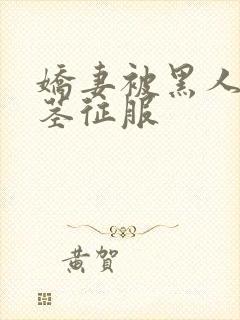 嬌妻被黑人
茎征服
黄賀